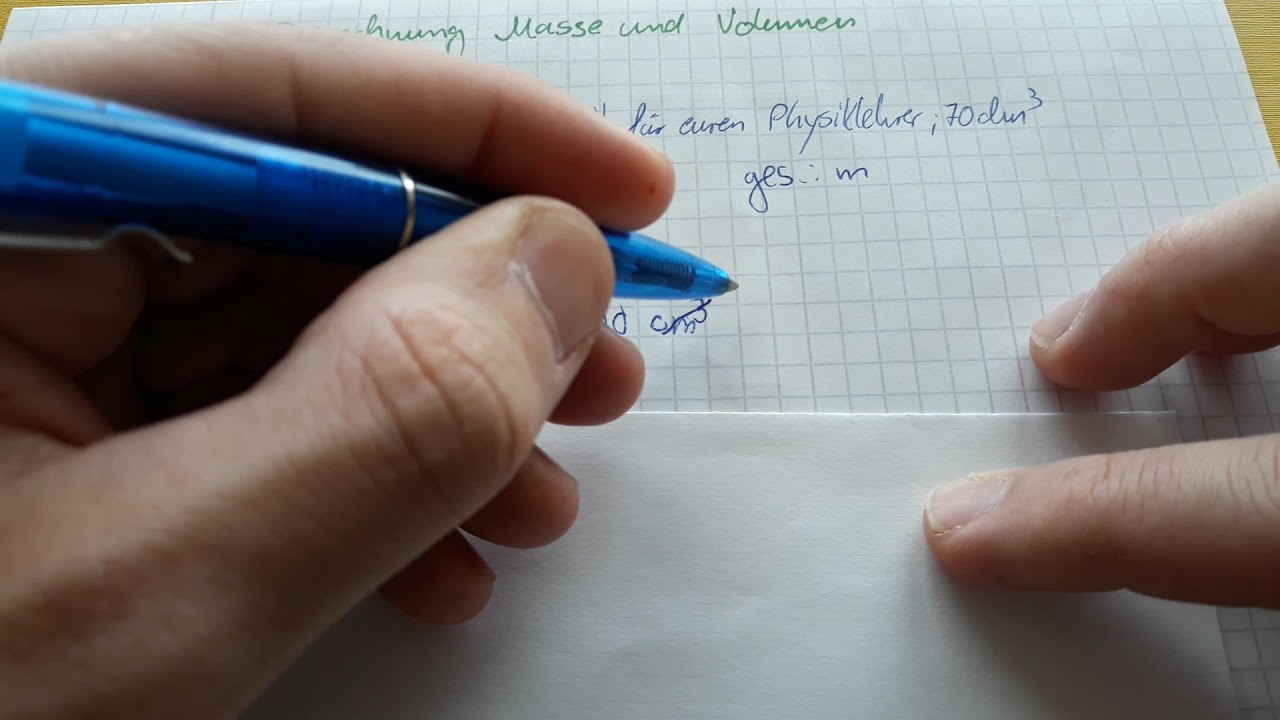 Masse und Volumen
für euren Physiklehrer; 70dm³
ges.: m
cm³